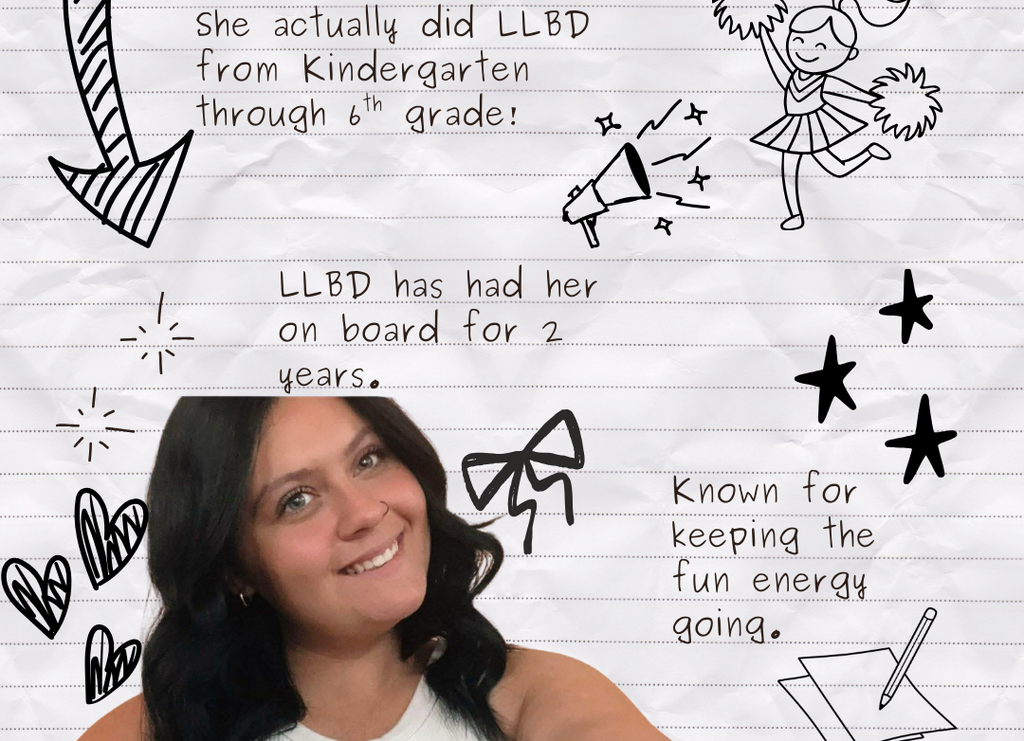 She actually did LLBD
from Kindergarten
through 6th grade!
LLBD has had her
on board for 2
years.
Known for
keeping the
fun energy
going.